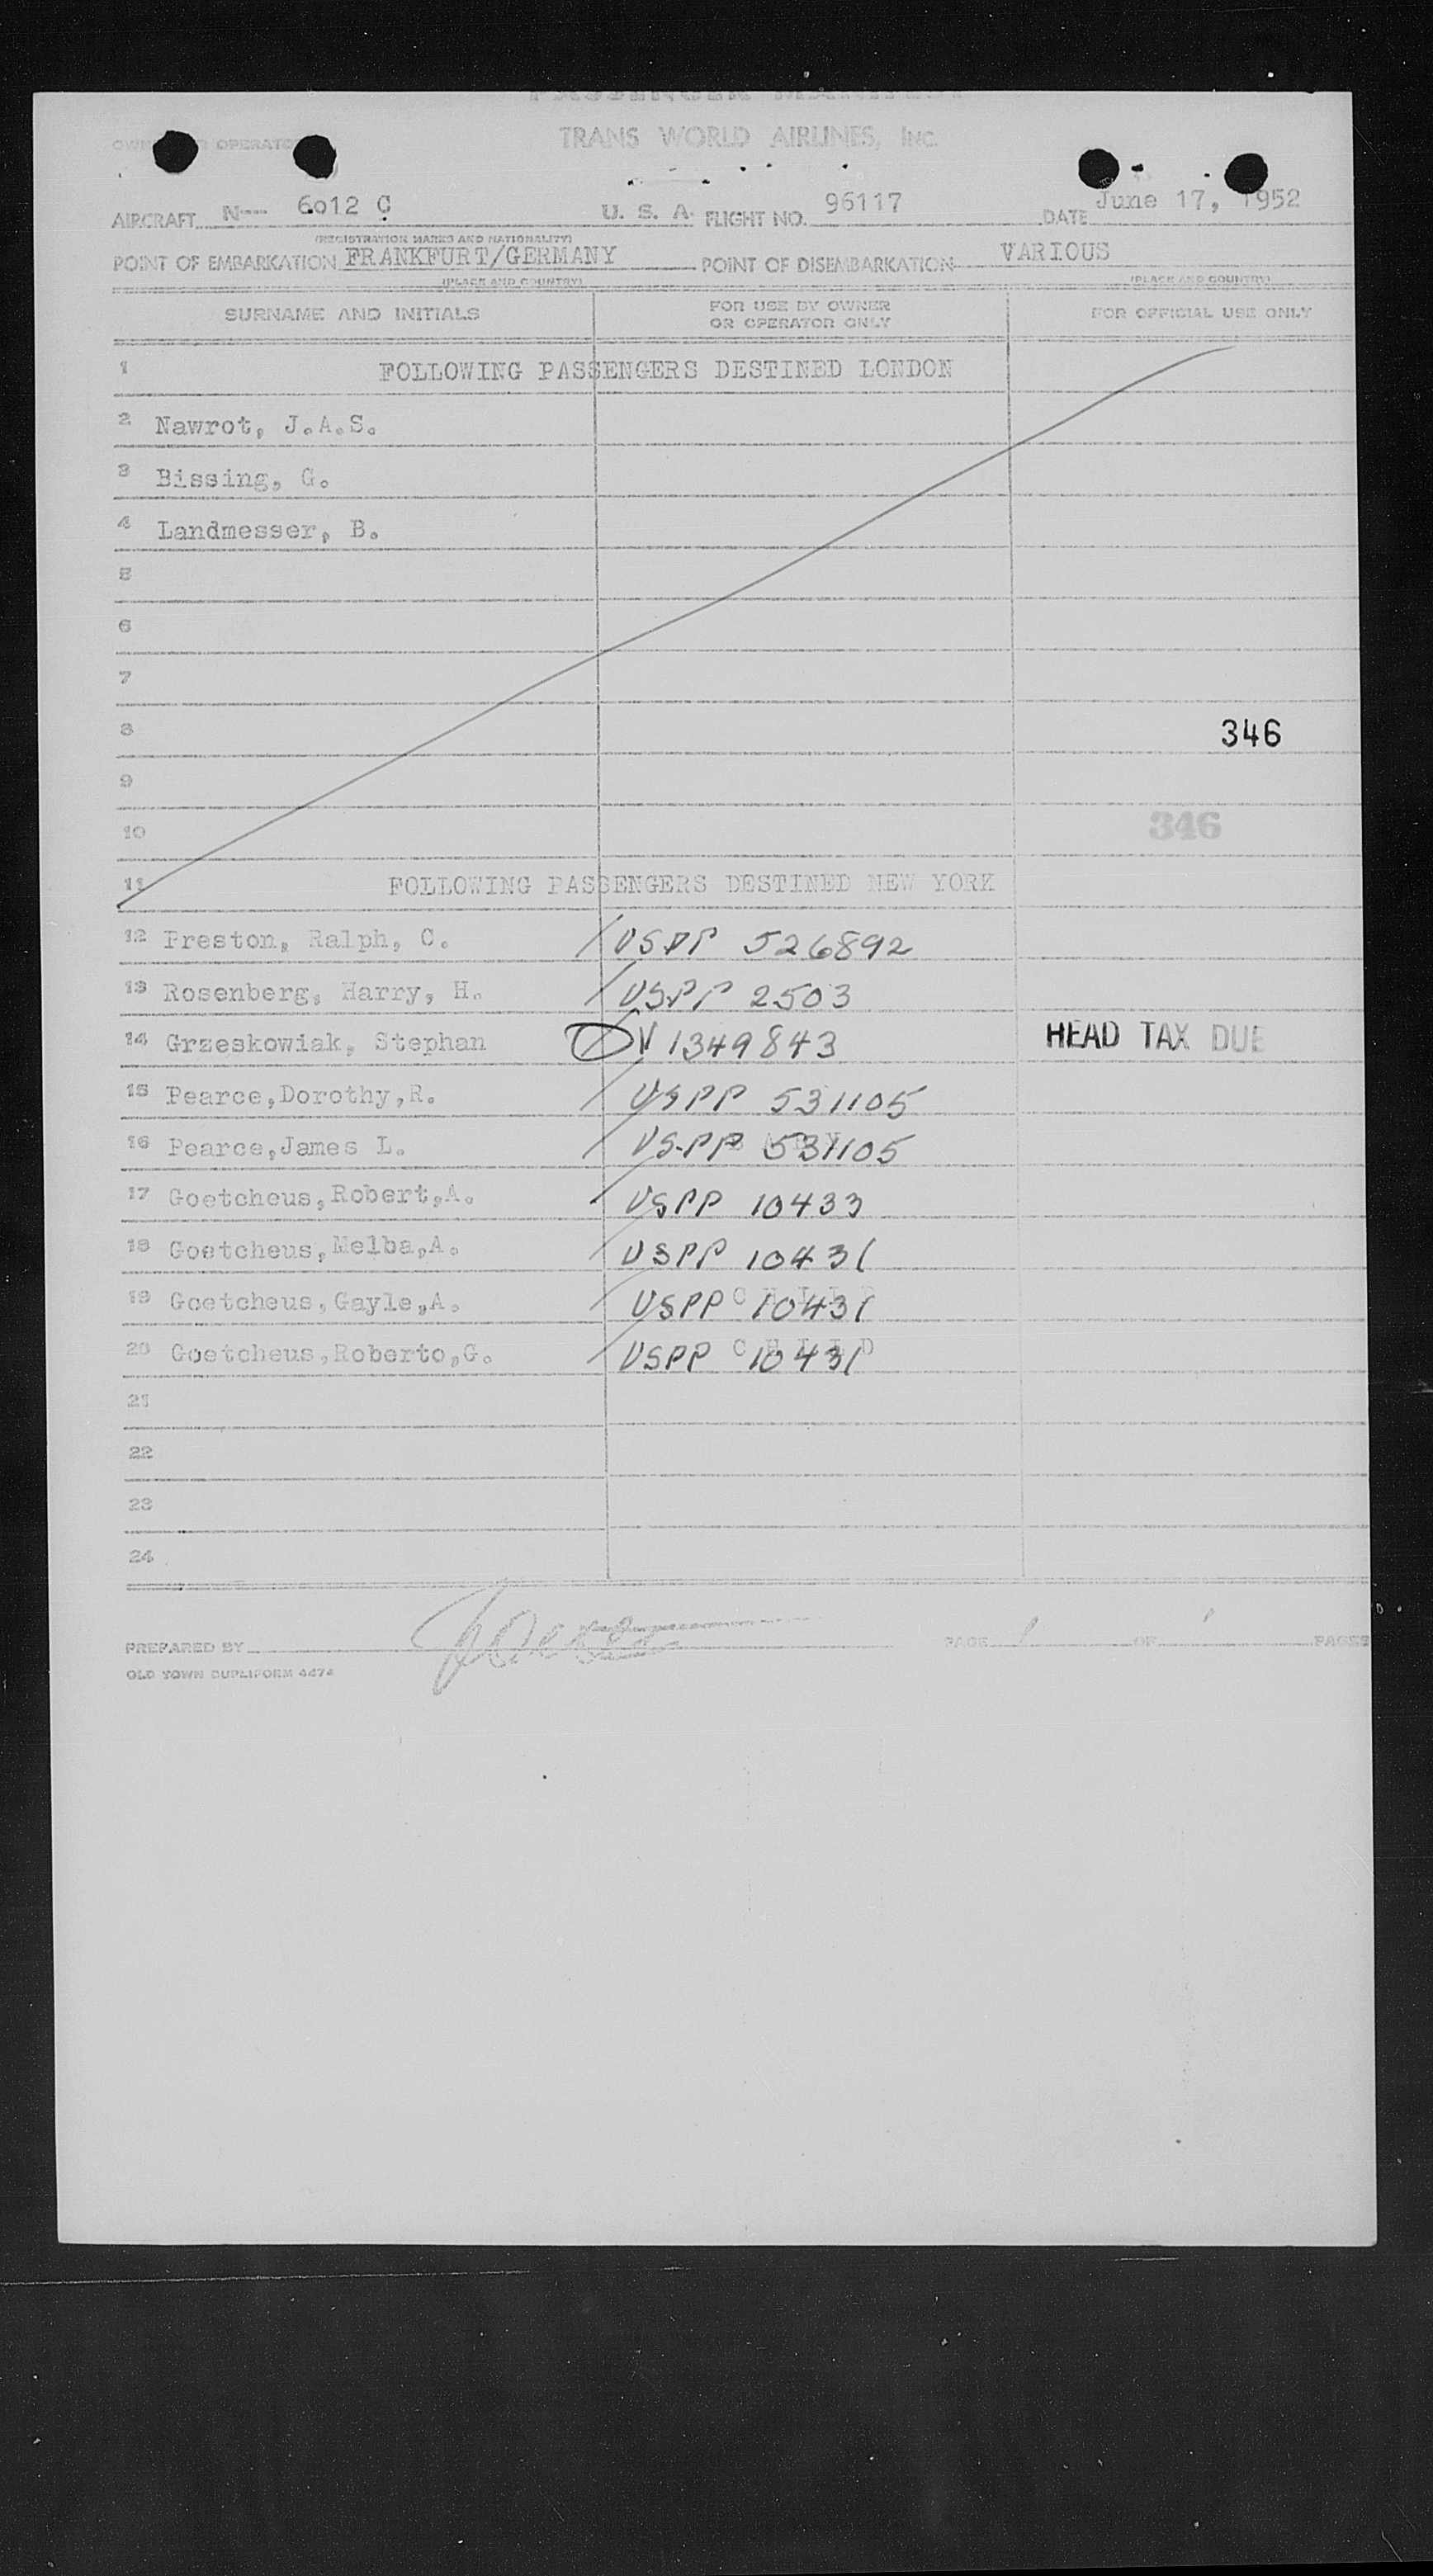 PASSENGER MANIFEST
TRANS WORLD AIRLINES, INC.
AIRCRAFT N-- 6012 C U. S. A. FLIGHT NO. 96117 DATE June 17, 1952
(REGISTRATION MARKS AND NATIONALITY)
POINT OF EMBARKATION FRANKFURT/GERMANY POINT OF DISEMBARKATION VARIOUS
(PLACE AND COUNTRY) (PLACE AND COUNTRY)
SURNAME AND INITIALS FOR USE BY OWNER OR OPERATOR ONLY FOR OFFICIAL USE ONLY
1 FOLLOWING PASSENGERS DESTINED LONDON
2 Nawrot, J.A.S.
3 Bissing, G.
4 Landmesser, B.
5
6
7
8 346
9
10 346
11 FOLLOWING PASSENGERS DESTINED NEW YORK
12 Preston, Ralph, C. USPP 526892
13 Rosenberg, Harry, H. USPP 2503
14 Grzeskowiak, Stephan V 1349843 HEAD TAX DUE
15 Pearce,Dorothy,R. USPP 531105
16 Pearce,James L. USPP 531105
17 Goetcheus,Robert,A. USPP 10433
18 Goetcheus,Melba,A. USPP 10431
19 Goetcheus,Gayle,A. USPP 10431 CHILD
20 Goetcheus,Roberto,G. USPP 10431 CHILD
21
22
23
24
PREPARED BY PAGE 1 OF 1 PAGES
OLD TOWN DUPLIFORM 4474